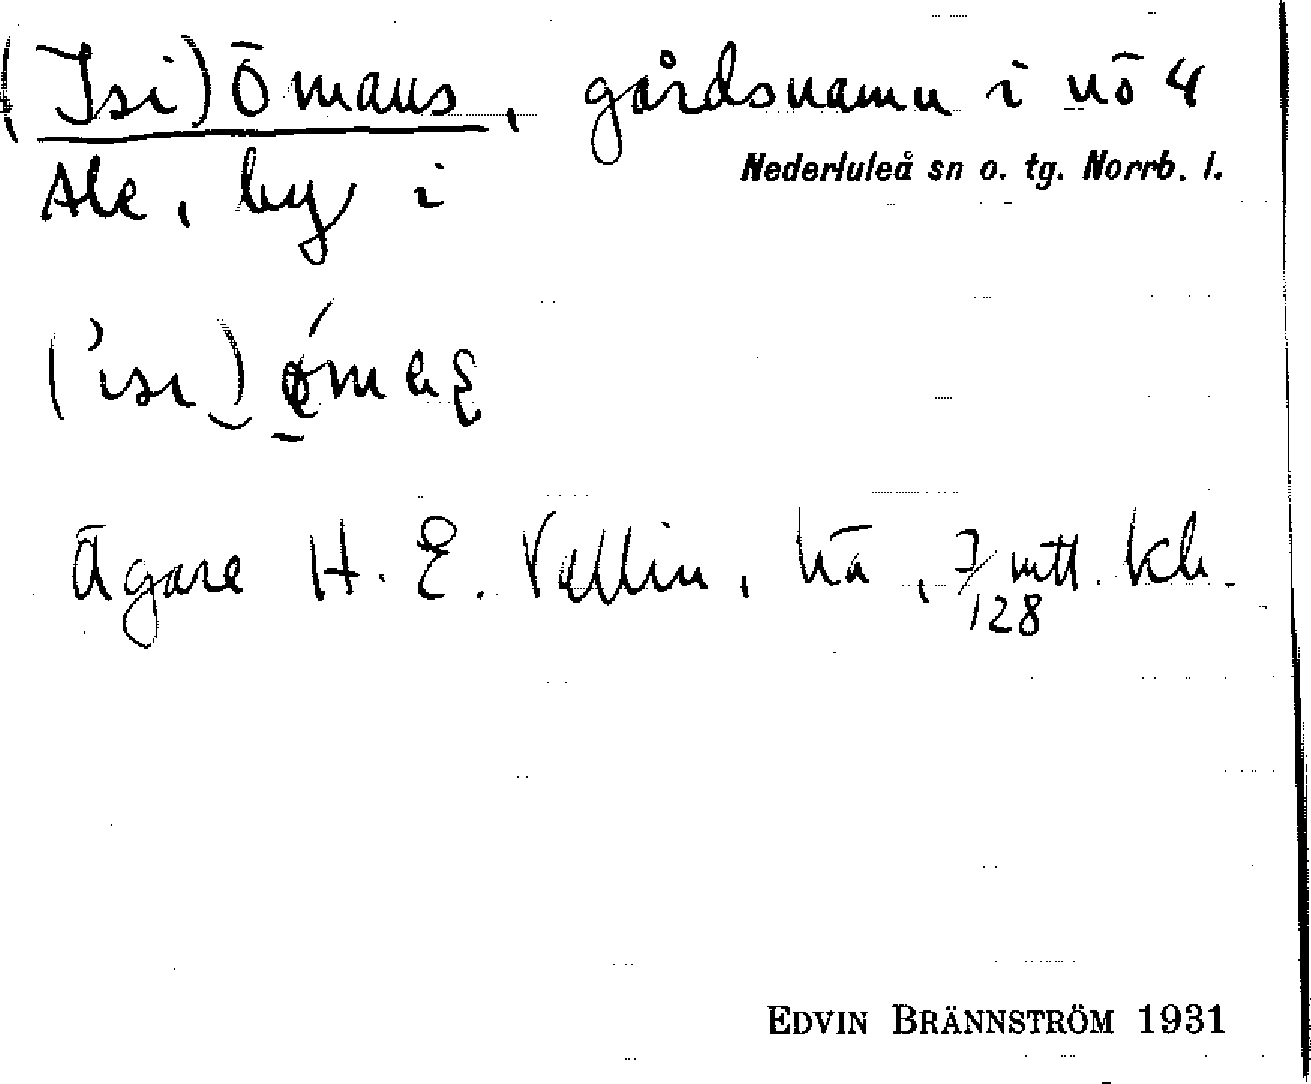 (Isi) Ömans, gårdsnamn i nö 4
Nederluleå sn o. tg. Norrb. l.
Ale, by i
Ägare H. E. Vallin, nä, 7/128 mtl. kr.
EDVIN BRÄNNSTRÖM 1931